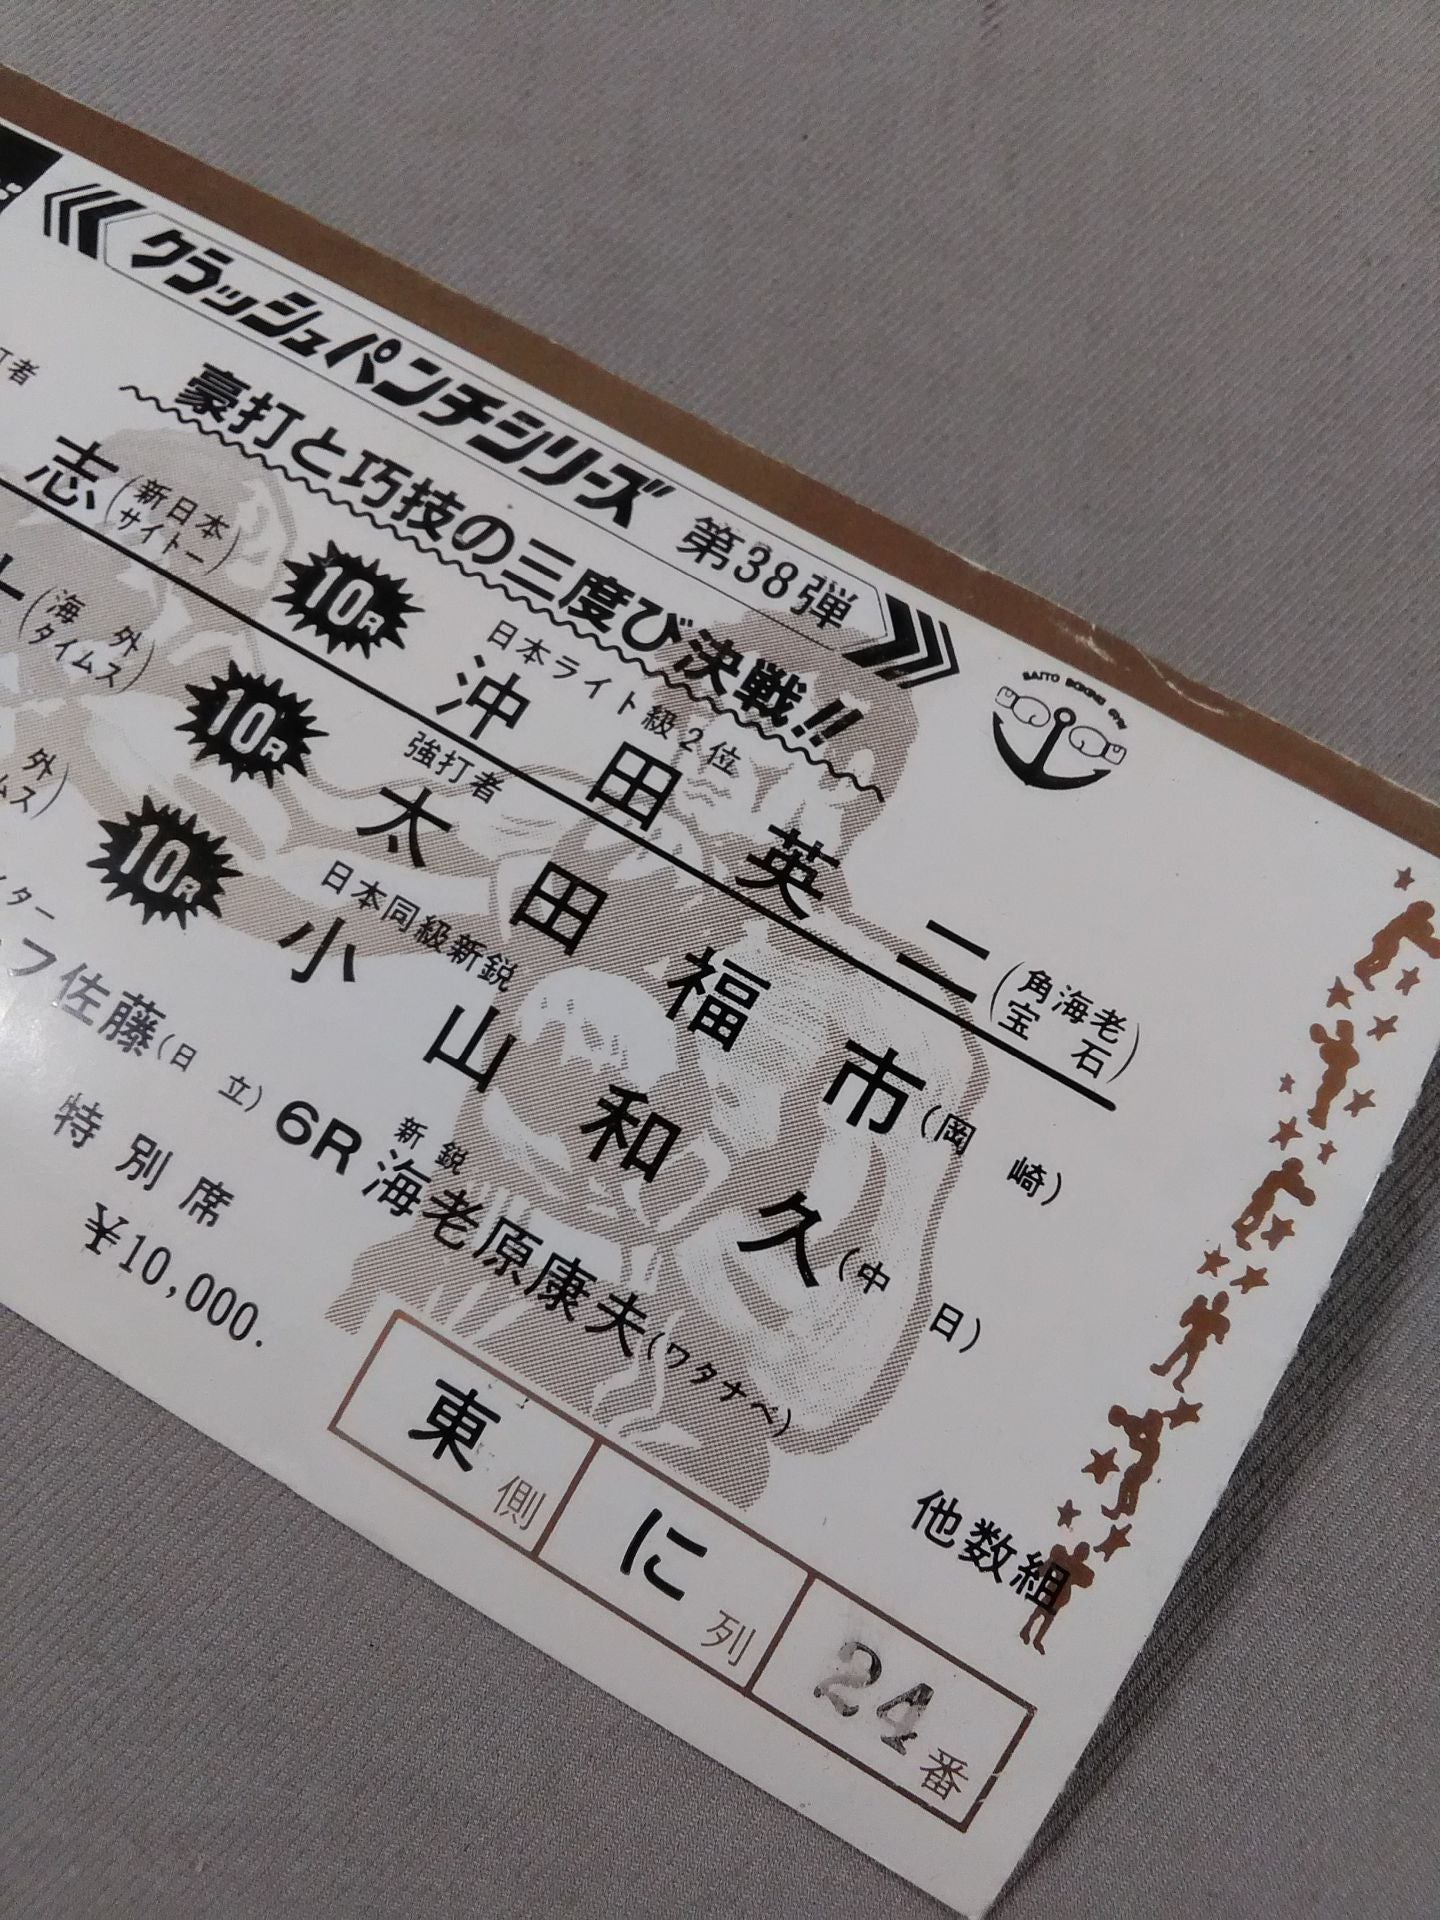 クラッシュパンチシリーズ 第38弾
SAITO BOXING GYM
～豪打と巧技の三度び決戦!!～
打者
日本ライト級2位
志(新日本サイトー) 10R 沖田英二(角海老宝石)
強打者
(海外タイムス) 10R 太田福市(岡崎)
日本同級新鋭
10R 小山和久(中日)
新鋭
佐藤(日立) 6R 海老原康夫(ワタナベ)
他数組
特別席
¥10,000.
東側 に列 24番